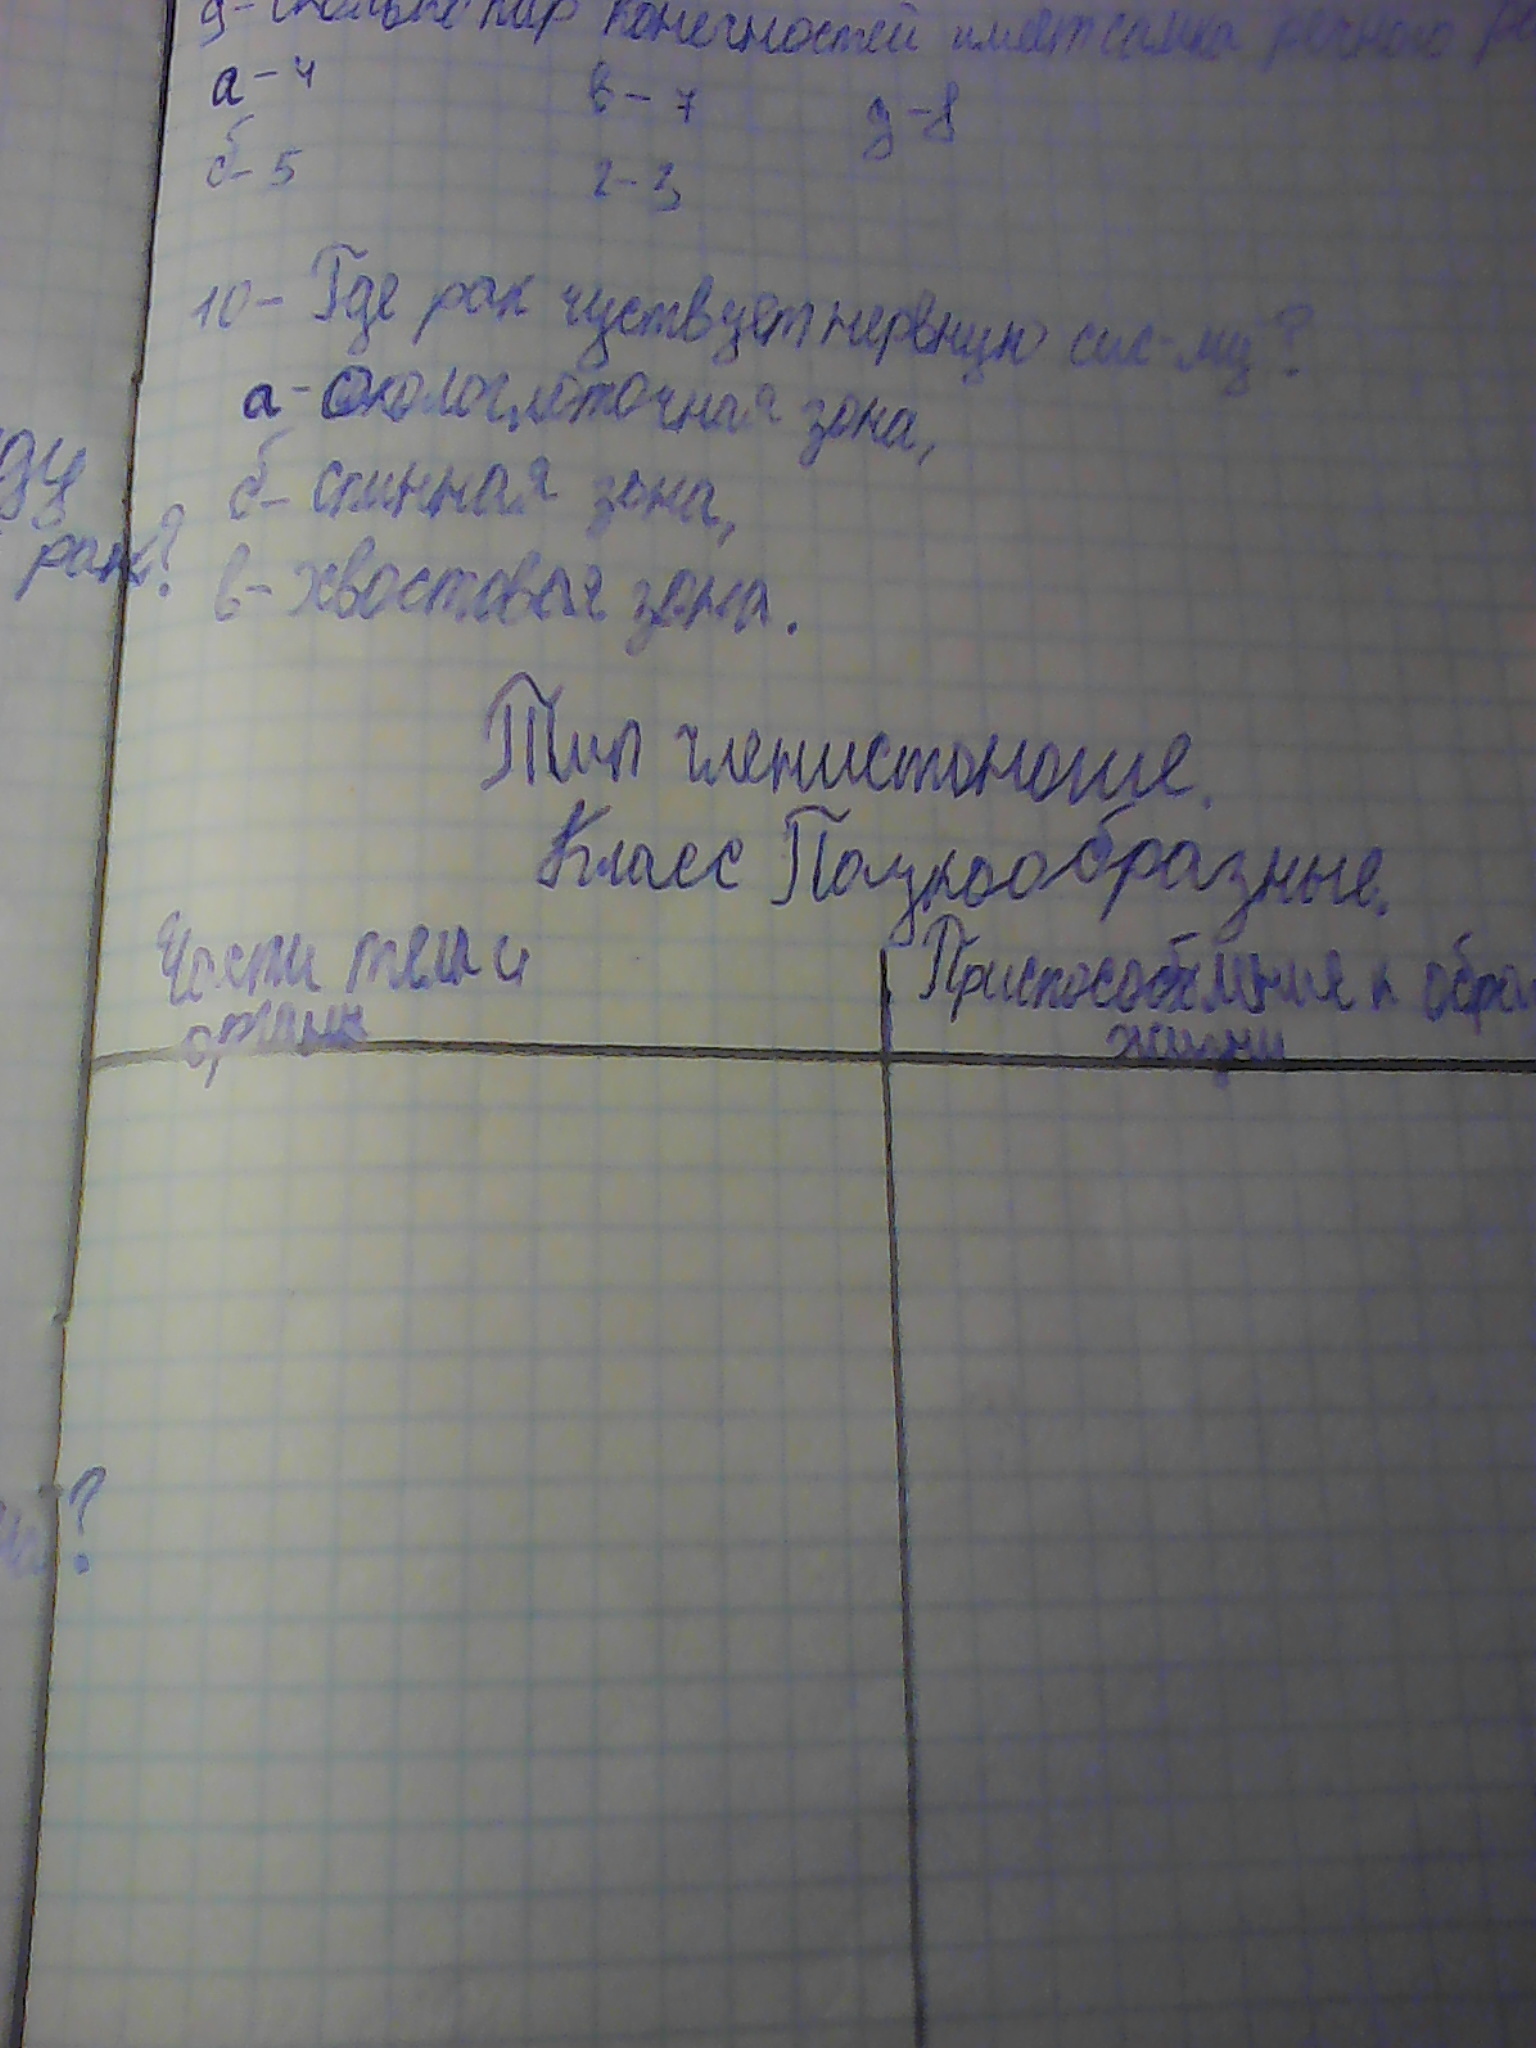 9- сколько пар конечностей имеет самка речного
а-4 в-7 д-8
б-5 г-3
10- Где рак чуствует нервную сис-му?
а- Окологлоточная зона,
б- спинная зона,
в- хвостовая зона.
рак?
Тип членистоногие.
Класс Паукообразные.
Части тела и Приспособления к обра
органы жизни